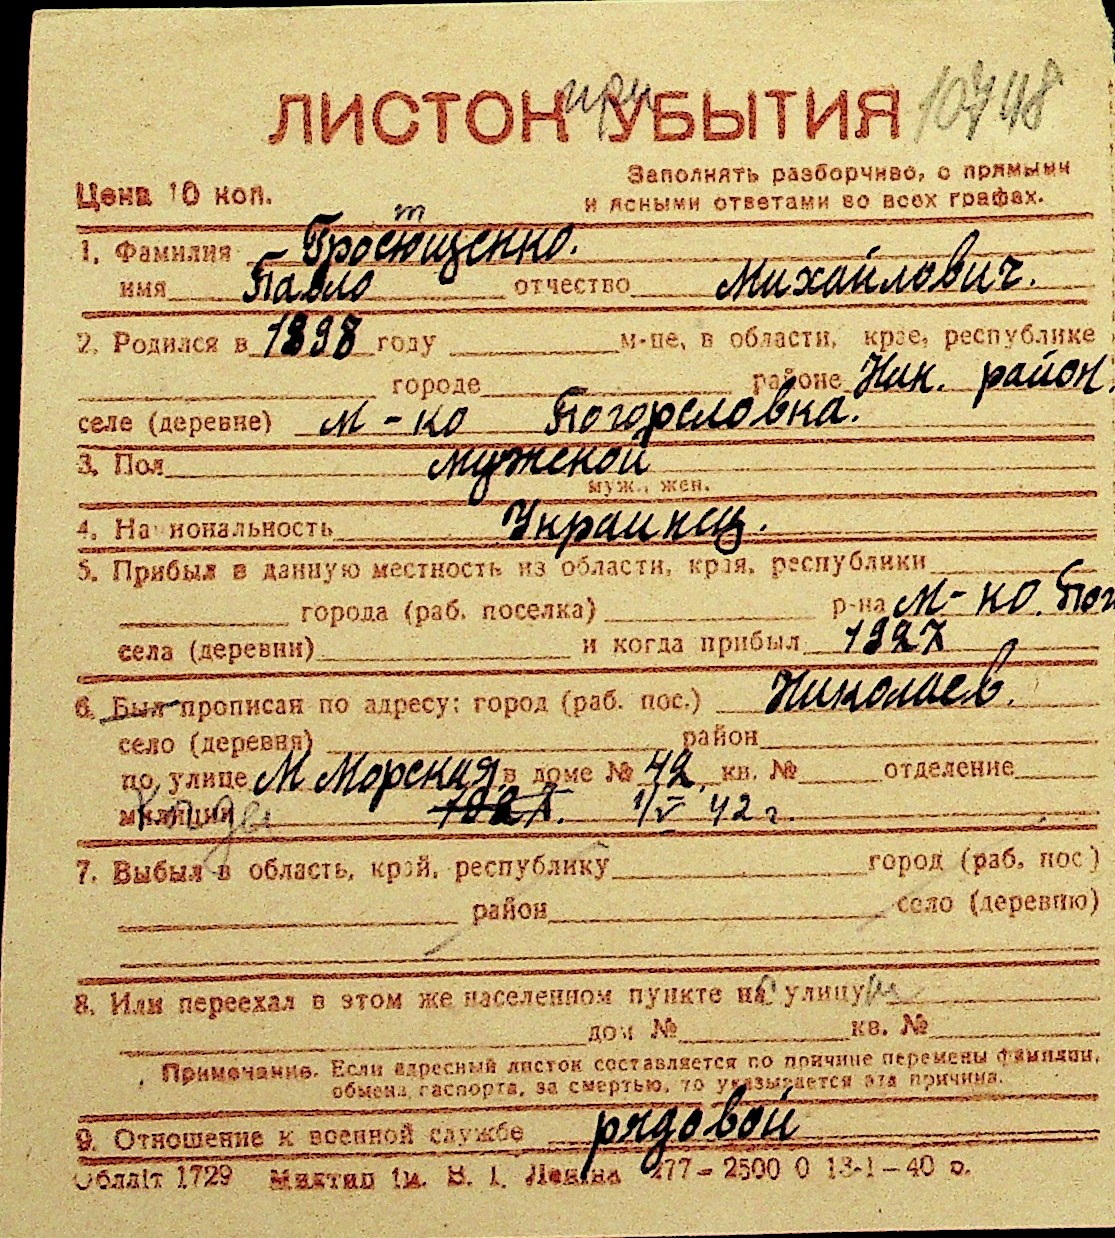 ЛИСТОК при УБЫТИЯ 10748
Цена 10 коп.
Заполнять разборчиво, с прямыми
и ясными ответами во всех графах.
1. Фамилия
имя Павло отчество Михайлович.
2. Родился в 1898 году м-це, в области, крае, республике
городе районе Ник. район.
селе (деревне) м-ко Погореловка.
3. Пол мужской
муж., жен.
4. Национальность Украинец.
5. Прибыл в данную местность из области, края, республики
города (раб. поселка) р-на м-ко. Пог
села (деревни) и когда прибыл 1927
6. Был прописан по адресу: город (раб. пос.) Николаев.
село (деревня) район
по улице М Морская в доме № 42 кв. № отделение
милиции 1927. 1/V 42 г.
7. Выбыл в область, край, республику город (раб. пос)
район село (деревню)
8. Или переехал в этом же населенном пункте на улицу
дом № кв. №
Примечание. Если адресный листок составляется по причине перемены фамилии,
обмена паспорта, за смертью, то указывается эта причина.
9. Отношение к военной службе рядовой
Обллiт 1729 Миктип iм. В. I. Ленiна 277-2500 0 13-1-40 р.